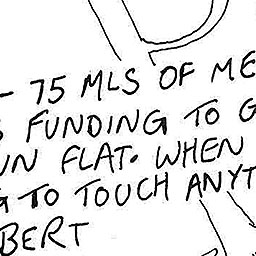 - 75 MLS OF ME
FUNDING TO G
UN FLAT. WHEN
G TO TOUCH ANYT
BERT